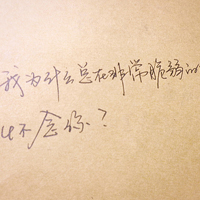 我为什么总在非常脆弱的
时候 念你？